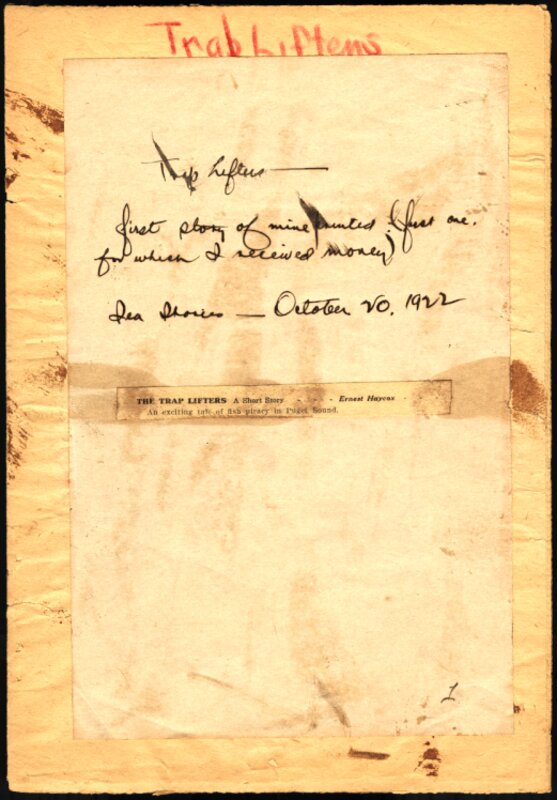 Trap Lifters
Trap Lifters —
first story of mine printed. (first one.
for which I received money)
Sea Stories — October 20, 1922
THE TRAP LIFTERS A Short Story - - - - Ernest Haycox -
An exciting tale of fish piracy in Puget Sound.
1